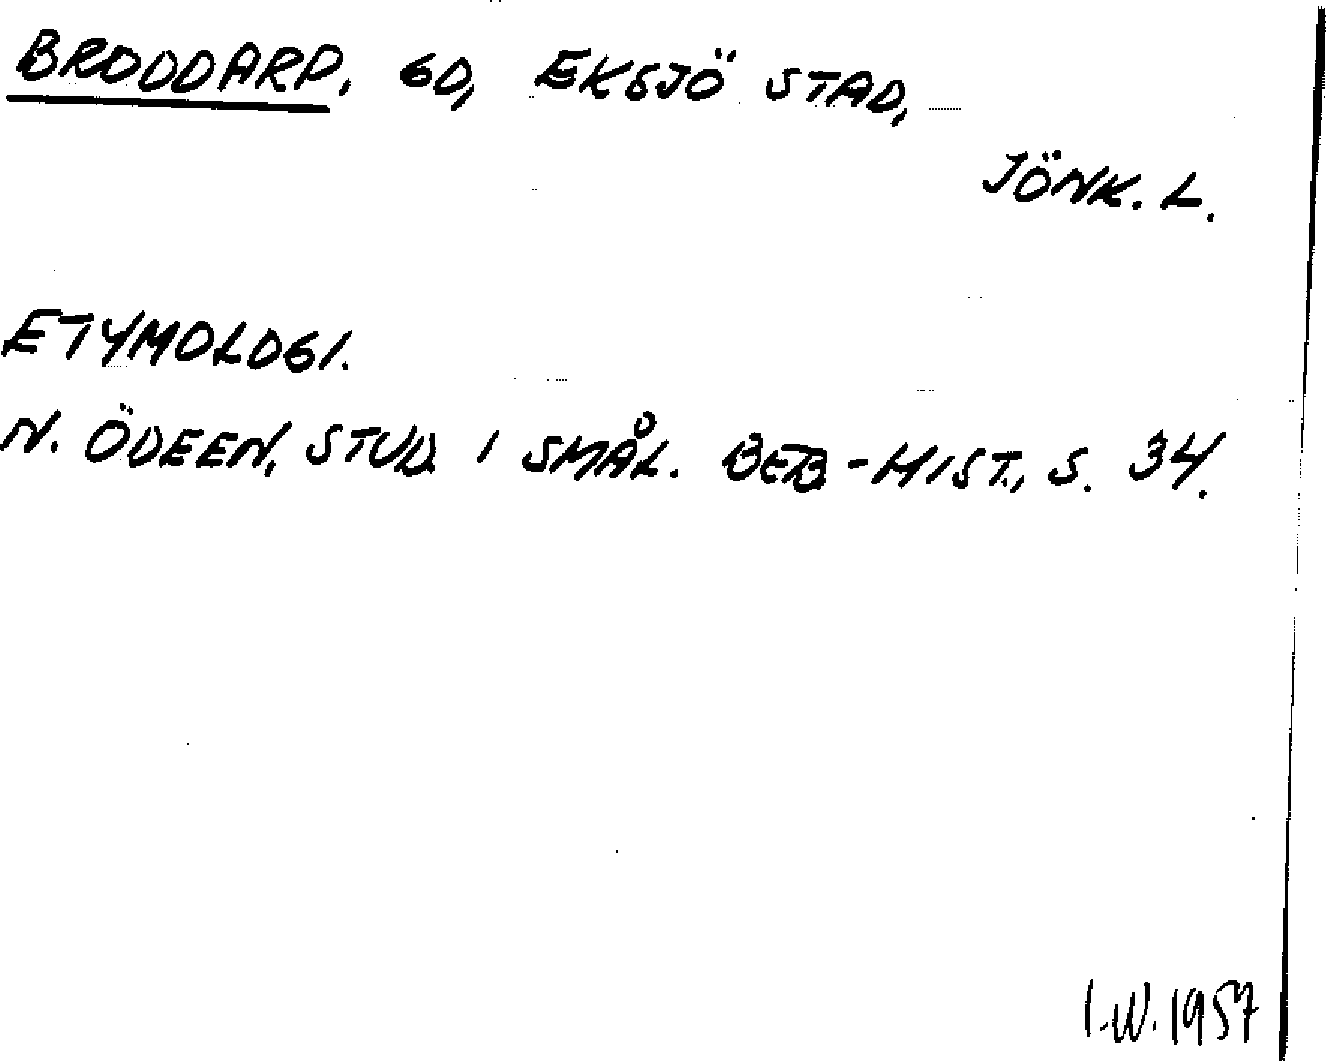 BRODDARP, GD, EKSJÖ STAD,
JÖNK. L.
ETYMOLOGI.
N. ÖDEEN, STUD. I SMÅL. BEB.-HIST., S. 34.
I.W. 1957